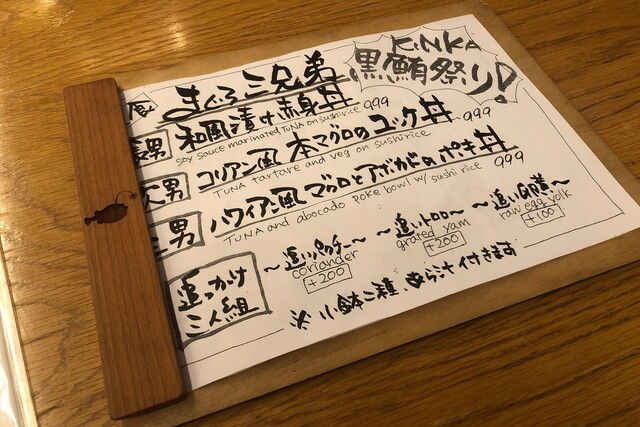 KiNKA
黒鮪祭り!
まぐろ三兄弟
長男 和風漬け赤身丼 999
soy sauce marinated TUNA on sushi rice
次男 コリアン風 本マグロのユッケ丼 999
TUNA tartare and veg on sushi rice
三男 ハワイアン風 マグロとアボカドのポキ丼 999
TUNA and abocado poke bowl w/ sushi rice
追っかけ
三人組
〜追いパクチー〜
coriander
+200
〜追いトロロ〜
grated yam
+200
〜追い卵黄〜
raw egg yolk
+100
※小鉢二種、あら汁付きます